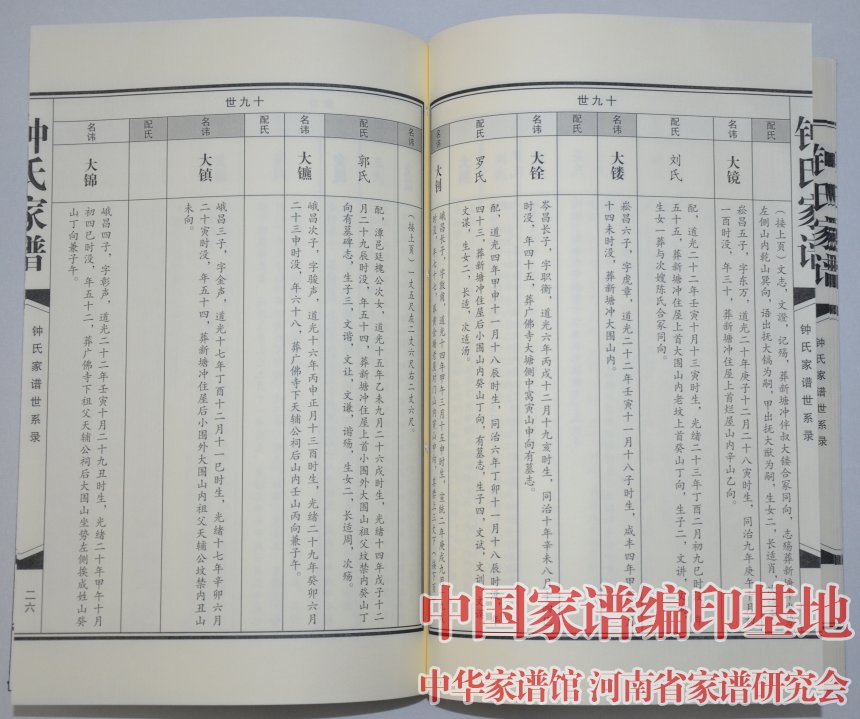 钟氏家谱
钟氏家谱世系录
钟氏家谱
钟氏家谱世系录
十九世
配氏
(接上页)文志,文證,记殇,葬新塘冲伴叔大镂合冢同向,志殇葬新塘
左侧山内乾山巽向,语出抚大镐为嗣,甲出抚大猷为嗣,生女二,长适肖,
名讳
大镜
崧昌五子,字东万,道光二十年庚子十二月二十八寅时生,同治九年庚午
一酉时没,年三十,葬新塘冲住屋上首烂屋山内辛山乙向。
配氏
刘氏
配,道光二十二年壬寅十月十三寅时生,光绪二十三年丁酉二月初九巳时
五十五,葬新塘冲住屋上首大围山内老坟上首癸山丁向,生子二,文讲,
生女一葬与次嫂陈氏合冢同向。
名讳
大镂
崧昌六子,字虎章,道光二十二年壬寅十一月十八子时生,咸丰四年甲
十四未时没,葬新塘冲大围山内。
配氏
名讳
大铨
岑昌长子,字职衡,道光六年丙戌十二月十九亥时生,同治十年辛未八月
时没,年四十五,葬广佛寺大塘侧中窝寅山申向有墓志。
配氏
罗氏
配,道光四年甲申十一月十八辰时生,同治六年丁卯十一月十八辰时
四十三,葬新塘冲住屋后小围山内癸山丁向,有墓志,生子四,文试,文训
文谋,生女二,长适,次适汤。
名讳
大钊
十九世
名讳
(接上页)一丈五尺左二丈六尺右二丈六尺。
配氏
郭氏
配,潭邑廷槐公次女,道光十五年乙未九月二十六戌时生,光绪十四年戊子十二
月二十九辰时没,年五十四,葬新塘冲住屋上首小围外大围山祖父坟禁内癸山丁
向有墓碑志,生子三,文谐,文让,文谦,谐殇,生女二,长适周,次殇。
名讳
大镳
峨昌次子,字骏声,道光十六年丙申正月十三酉时生,光绪二十九年癸卯六月
二十三申时没,年六十八,葬广佛寺下天辅公祠后山内壬山丙向兼子午。
配氏
名讳
大镇
峨昌三子,字金声,道光十七年丁酉十二月十一巳时生,光绪十七年辛卯六月
二十寅时没,年五十四,葬新塘冲住屋后小围外大围山内祖父天辅公坟禁内丑山
未向。
配氏
名讳
大锦
峨昌四子,字彰声,道光二十二年壬寅十月二十九丑时生,光绪二十年甲午十月
初四巳时没,年五十二,葬广佛寺下祖父天辅公祠后大围山坐势左侧挨成姓山癸
山丁向兼子午。
钟氏家谱
钟氏家谱世系录
二六
中国家谱编印基地
中华家谱馆 河南省家谱研究会